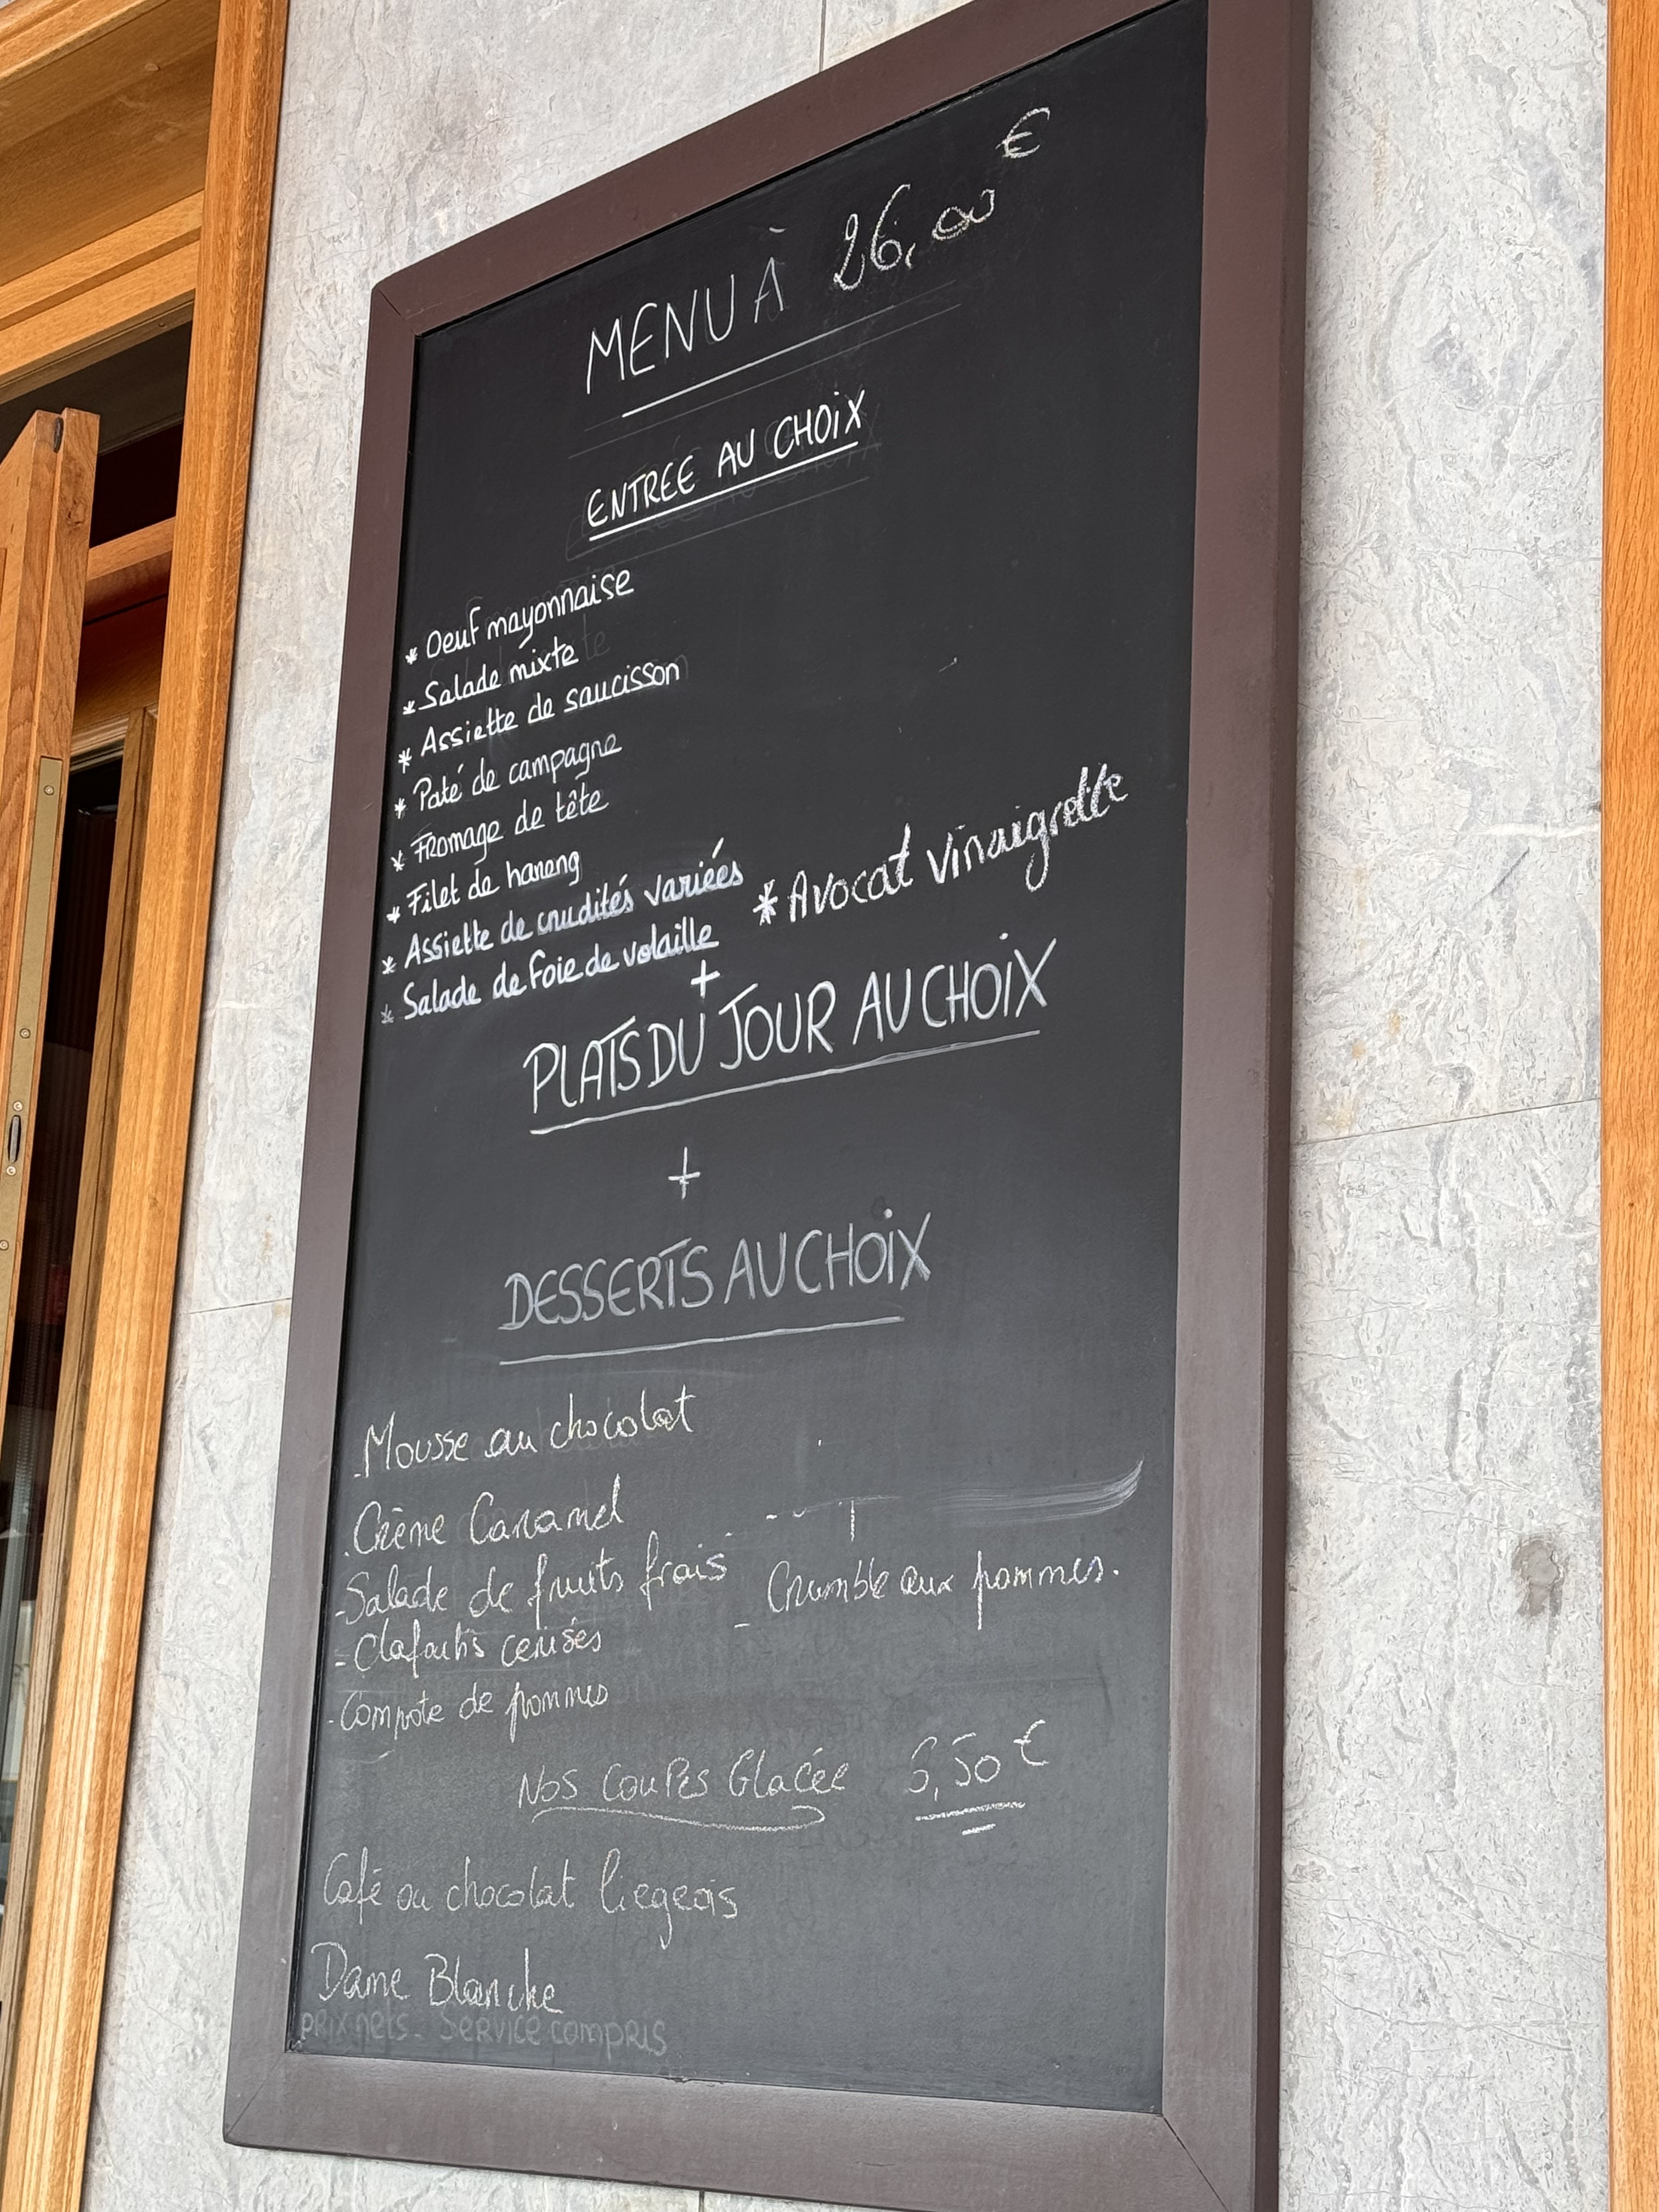 MENU À 26,00 €
ENTREE AU CHOIX
* Oeuf mayonnaise
* Salade mixte
* Assiette de saucisson
* Paté de campagne
* Fromage de tête
* Filet de hareng
* Assiette de crudités variées
* Avocat vinaigrette
* Salade de Foie de volaille
+
PLATS DU JOUR AU CHOIX
+
DESSERTS AU CHOIX
- Mousse au chocolat
. Crème Caramel
- Salade de fruits frais
- Crumble aux pommes.
- Clafoutis cerises
- Compote de pommes
Nos Coupes Glacée ,50 €
Café ou chocolat liegeois
Dame Blanche
prix nets - Service compris